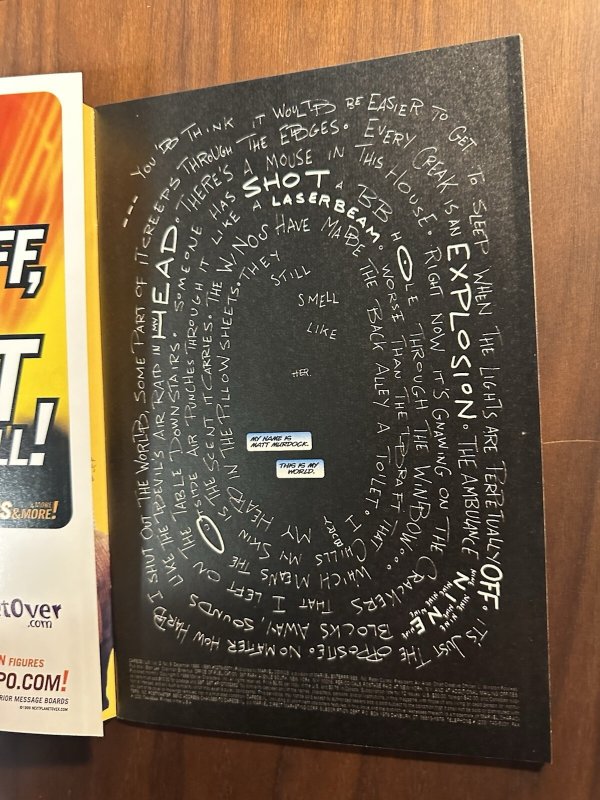 FF,
T
LL!
S & MORE!
etOver
.com
N FIGURES
PO.COM!
RIOR MESSAGE BOARDS
©1999 NEXTPLANETOVER.COM
... YOU'D THINK IT WOULD BE EASIER TO GET TO SLEEP WHEN THE LIGHTS ARE PERPETUALLY OFF. IT'S JUST THE OPPOSITE. NO MATTER HOW HARD I SHUT OUT THE WORLD, SOME PART OF IT CREEPS THROUGH THE EDGES. EVERY CREAK IS AN EXPLOSION. THE AMBULANCE, NINE BLOCKS AWAY, SOUNDS LIKE THE DEVIL'S AIR RAID IN MY HEAD. THERE'S A MOUSE IN THIS HOUSE. RIGHT NOW IT'S GNAWING ON THE CRACKERS THAT I LEFT ON THE TABLE DOWNSTAIRS. SOMEONE HAS SHOT A BB HOLE THROUGH THE WINDOW... WHICH MEANS THE OUTSIDE AIR PUNCHES THROUGH IT LIKE A LASERBEAM. WORSE THAN THE DRAFT THAT CHILLS MY SKIN IS THE SCENT IT CARRIES. THE WINOS HAVE MADE THE BACK ALLEY A TOILET. I BURY MY HEAD IN THE PILLOW SHEETS. THEY
STILL
SMELL
LIKE
HER.
MY NAME IS
MATT MURDOCK.
THIS IS MY
WORLD.